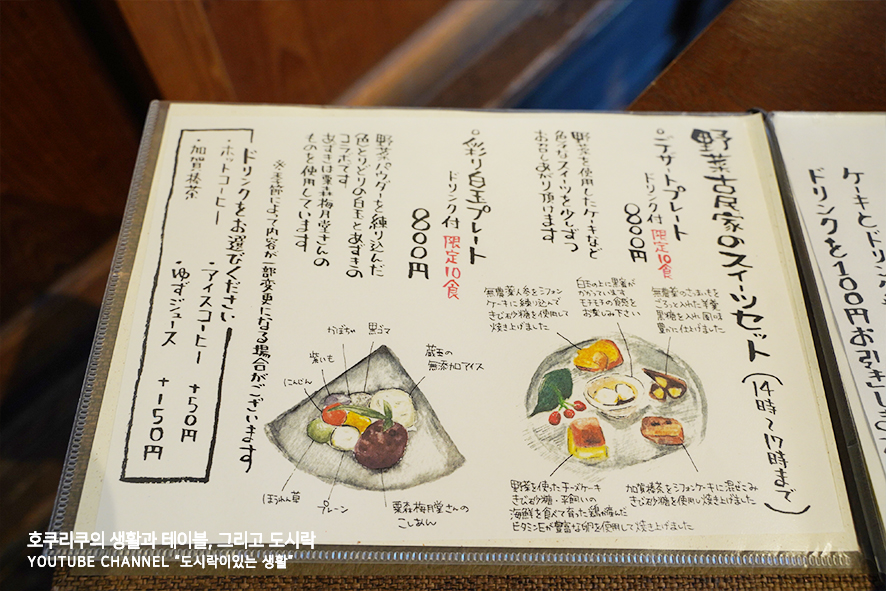 野菜古民家のスイーツセット（14時〜17時まで）
デザートプレート
ドリンク付 限定10食
800円
野菜を使用したケーキなど
色々なスイーツを少しずつ
お召しあがり頂けます
無農薬人参をシフォン
ケーキに練り込んで
きび砂糖を使用して
焼き上げました
白玉の上に黒蜜が
かかっています
モチモチの食感を
お楽しみ下さい
無農薬のさつまいもを
ごろっと入れた羊羹
黒糖を入れ風味
豊かに仕上げました
野菜を使ったチーズケーキ
きび砂糖・平飼いの
海鮮を食べて育った鶏が産んだ
ビタミンEが豊富な卵を使用して焼き上げました
加賀棒茶をシフォンケーキに混ぜこみ
きび砂糖を使用し焼き上げました
彩り白玉プレート
ドリンク付 限定10食
800円
野菜パウダーを練り込んだ
色とりどりの白玉とあずきの
コラボです
あずきは栗森梅月堂さんの
ものを使用しています
※季節によって内容が一部変更になる場合がございます
黒ゴマ
かぼちゃ
紫いも
にんじん
ほうれん草
プレーン
栗森梅月堂さんの
こしあん
蔵王の
無添加アイス
ドリンクをお選びください
・ホットコーヒー
・アイスコーヒー +50円
・加賀棒茶
・ゆずジュース +150円
ケーキとドリンク
ドリンクを100円お引きします
호쿠리쿠의 생활과 테이블, 그리고 도시락
YOUTUBE CHANNEL "도시락이있는 생활"